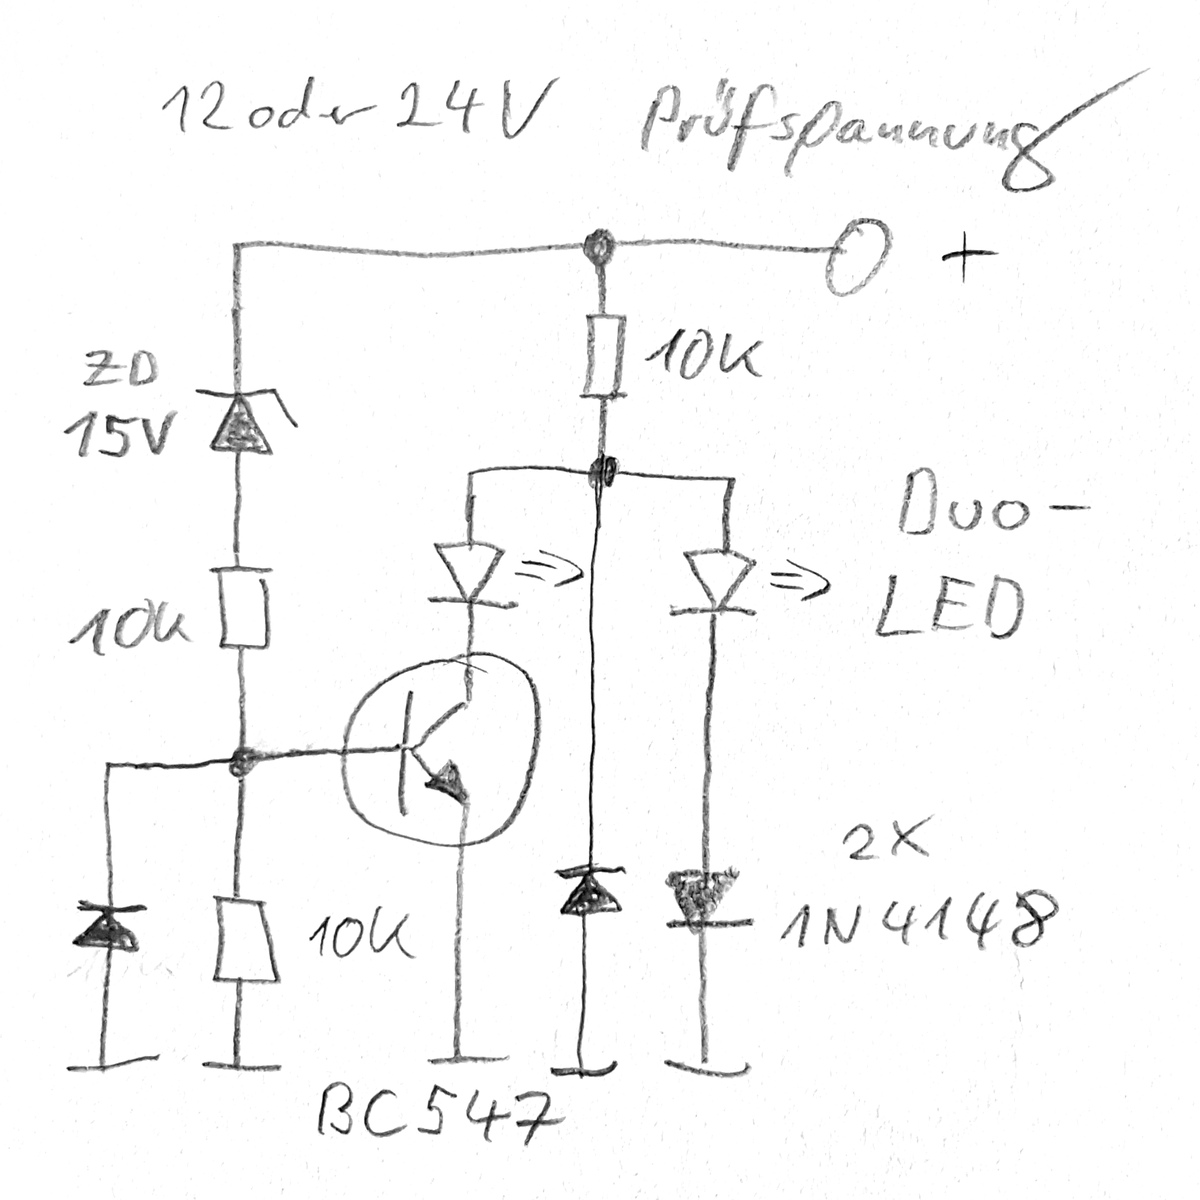 12 oder 24V Prüfspannung
+
10K
ZD
15V
Duo-
LED
10k
2x
1N4148
10K
BC547